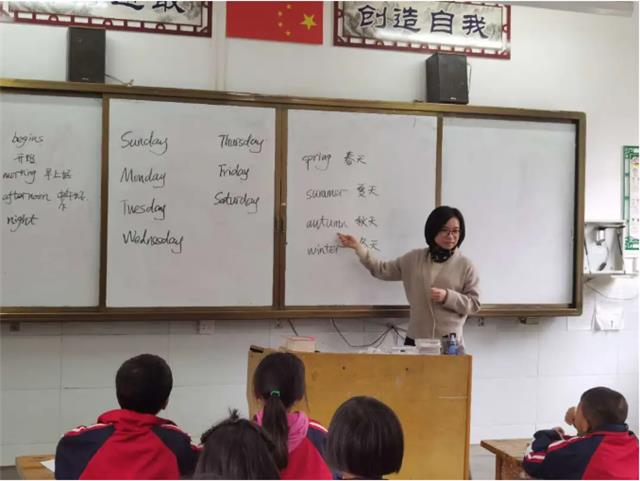 创造自我
begins
开始
morning 早上好
afternoon
night
Sunday
Monday
Tuesday
Wednesday
Thursday
Friday
Saturday
spring 春天
summer 夏天
autumn 秋天
winter 冬天